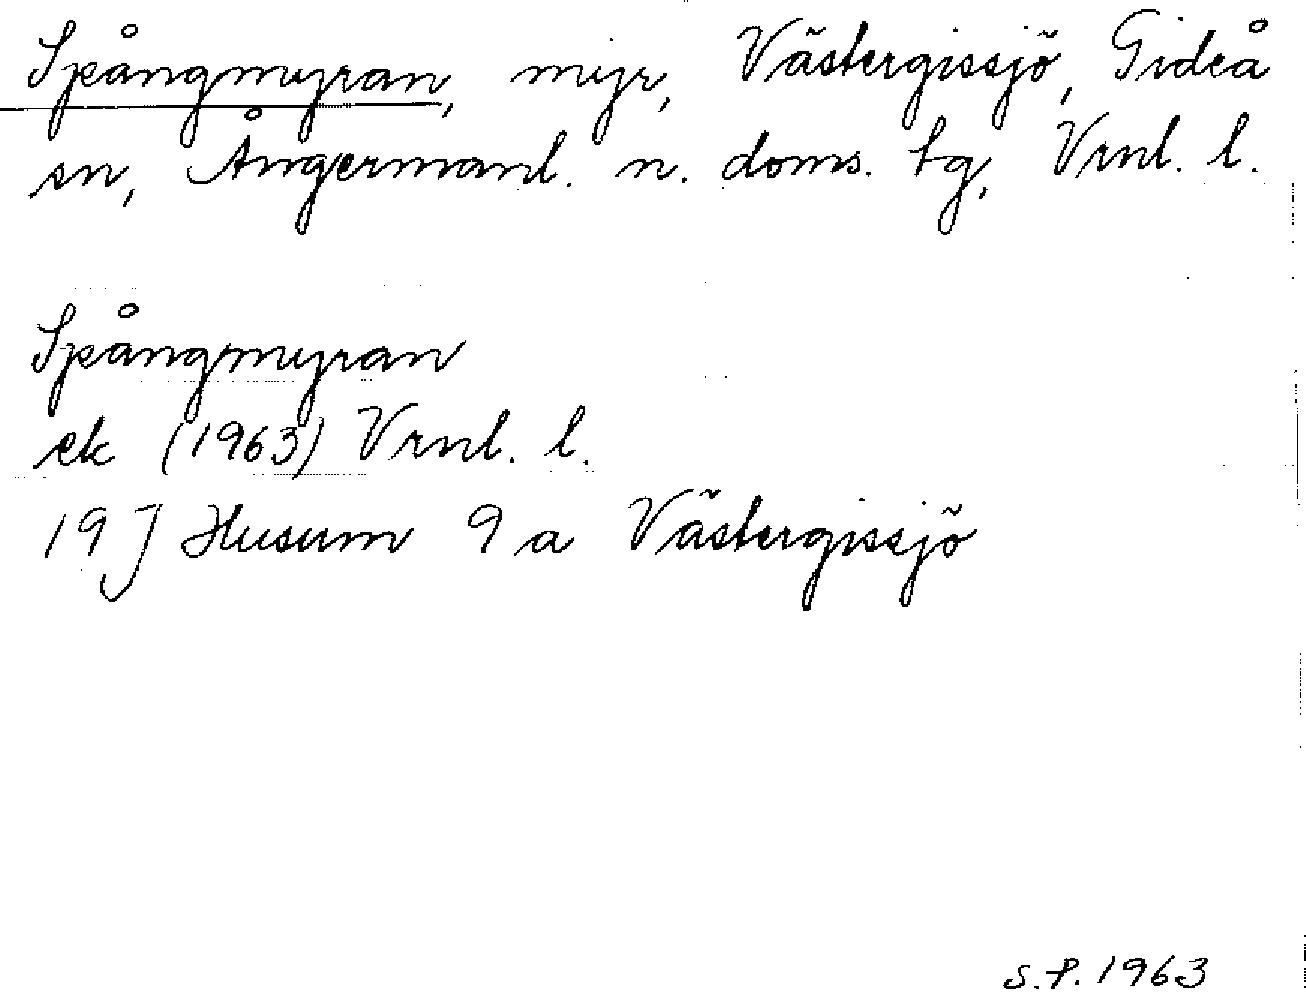 Spångmyran, myr, Västergissjö, Gideå
sn, Ångermanl. n. doms. tg, Vrnl. l.
Spångmyran
ek (1963) Vrnl. l.
19 J Husum 9 a Västergissjö
S.P. 1963